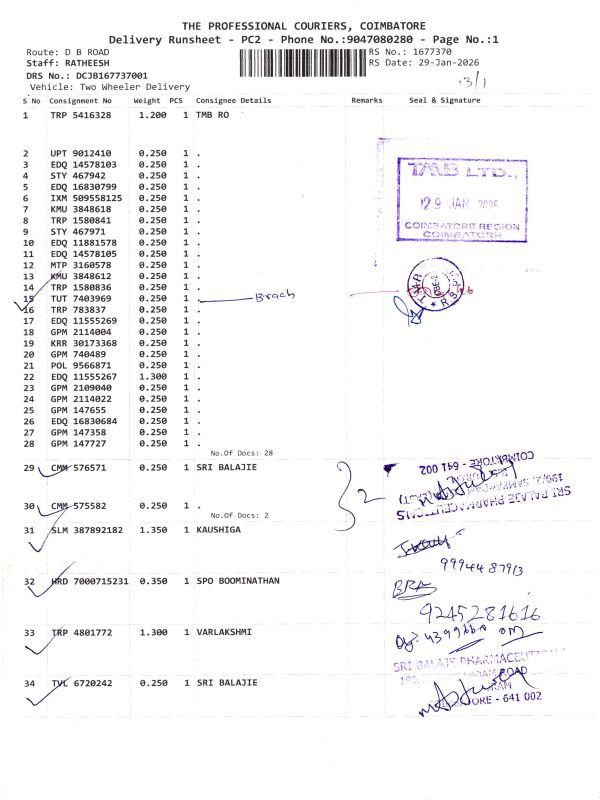 THE PROFESSIONAL COURIERS, COIMBATORE
Delivery Runsheet - PC2 - Phone No.:9047080280 - Page No.:1
Route: D B ROAD
RS No.: 1677370
Staff: RATHEESH
RS Date: 29-Jan-2026
DRS No.: DCJB167737001
13/1
Vehicle: Two Wheeler Delivery
S No Consignment No Weight PCS Consignee Details Remarks Seal & Signature
1 TRP 5416328 1.200 1 TMB RO
2 UPT 9012410 0.250 1 .
3 EDQ 14578103 0.250 1 .
4 STY 467942 0.250 1 .
5 EDQ 16830799 0.250 1 .
6 IXM 509558125 0.250 1 .
7 KMU 3848618 0.250 1 .
8 TRP 1580841 0.250 1 .
9 STY 467971 0.250 1 .
10 EDQ 11881578 0.250 1 .
11 EDQ 14578105 0.250 1 .
12 MTP 3160578 0.250 1 .
13 KMU 3848612 0.250 1 .
14 TRP 1580836 0.250 1 .
15 TUT 7403969 0.250 1 . Brach
16 TRP 783837 0.250 1 .
17 EDQ 11555269 0.250 1 .
18 GPM 2114004 0.250 1 .
19 KRR 30173368 0.250 1 .
20 GPM 740489 0.250 1 .
21 POL 9566871 0.250 1 .
22 EDQ 11555267 1.300 1 .
23 GPM 2109040 0.250 1 .
24 GPM 2114022 0.250 1 .
25 GPM 147655 0.250 1 .
26 EDQ 16830684 0.250 1 .
27 GPM 147358 0.250 1 .
28 GPM 147727 0.250 1 .
TMB LTD.,
29 JAN 2026
COIMBATORE REGION
COIMBATORE
No.Of Docs: 28
29 CMM 576571 0.250 1 SRI BALAJIE
2
COIMBATORE - 641 002
30 CMM 575582 0.250 1 .
No.Of Docs: 2
31 SLM 387892182 1.350 1 KAUSHIGA
9994487913
32 HRD 7000715231 0.350 1 SPO BOOMINATHAN
9245281616
33 TRP 4801772 1.300 1 VARLAKSHMI
SRI BALAJE PHARMACEUTI
ROAD
34 TVL 6720242 0.250 1 SRI BALAJIE
ORE - 641 002